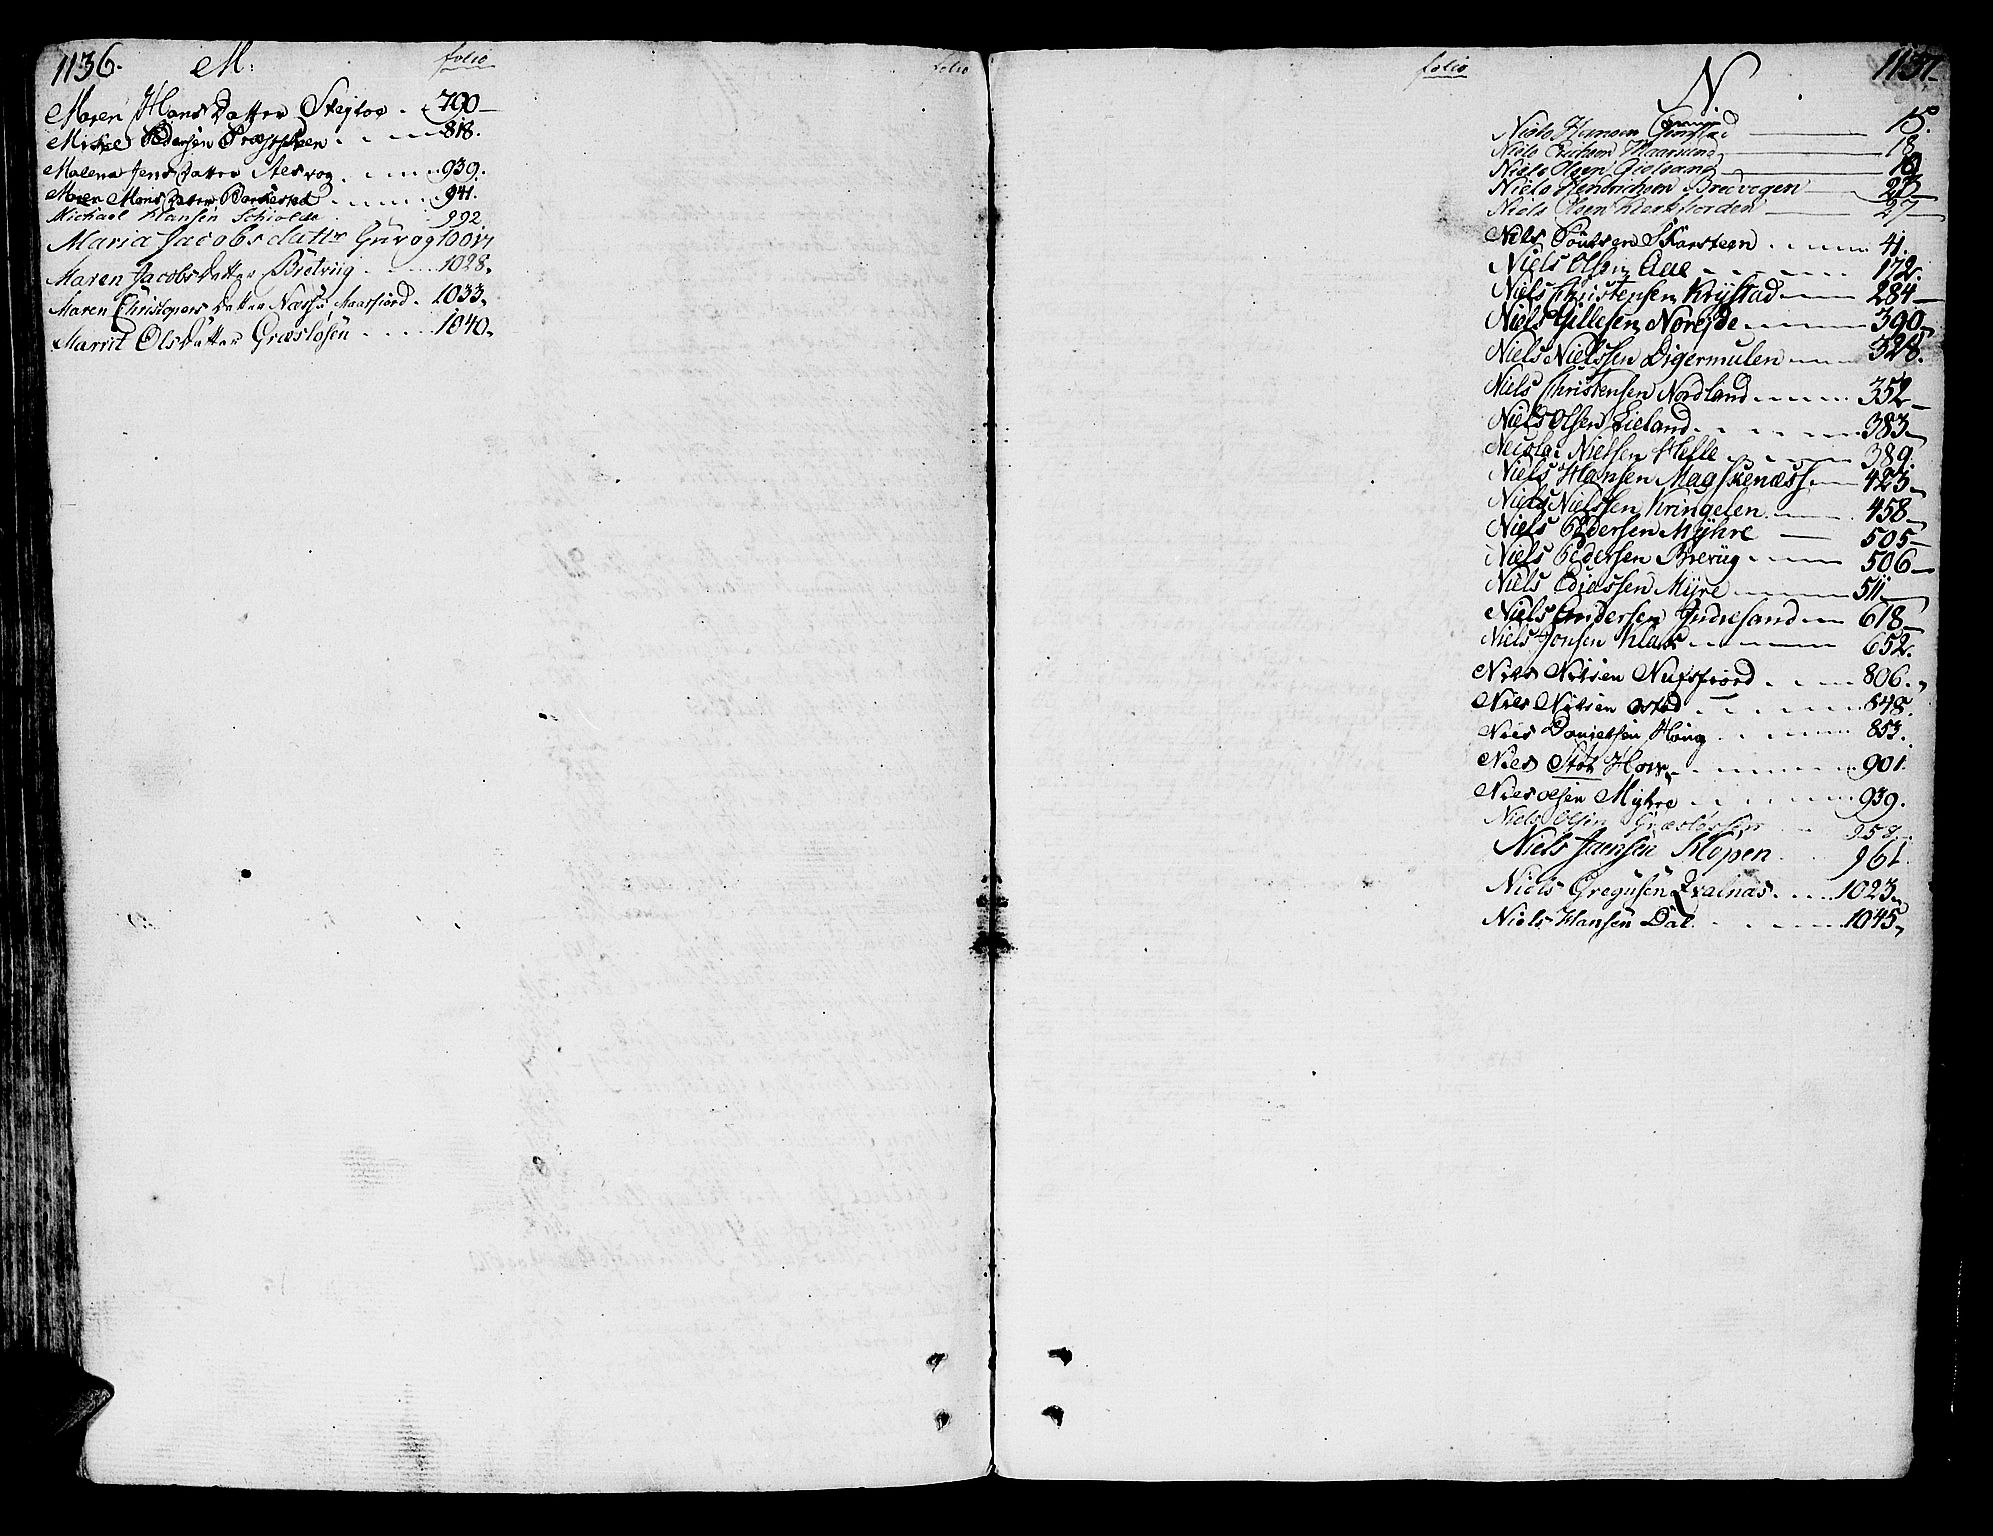 1136.
M.
folio
folio
Maren Hans Datter Steiloe . 790
Mickel Pedersen Præststeen . . 818.
Malena Jens Datter Alsvog . 939.
Maren Mons Datter Barkestad . 941.
Michael Hansen Schiolde 992
Maria Jacobsdattr Guvog 1001
Maren Jacobsdatter Brotvüg . 1028.
Maren Christopers Datter Næss i Maarfiord . 1033.
Marrit Ols Datter Græsløsen . 1040.
folio
N
1137
Niels Hansen 15.
Niels Erichsen Maarsund 18
Niels Olsen 18
Niels Hendrichsen Bredvegen 23
Niels Olsen Kierkfiorden 27
Nils Poulsen Skarsteen . 41.
Niels Olsen Aae . 172.
Niels Christensen Krÿstad 284
Niels Gillesen Norejde 390
Niels Nielssen Digermulen 328.
Niels Christensen Nordland 352
Niels Olsen Lieland 383
Nicolai Nielsen Helle 389.
Niels Hansen Magskenæss 423
Niels Nielssen Kringelen 458
Niels Pedersen Mÿhre 505
Niels Pedersen Brevüg 506
Niels Ediassen Mÿre 511
Niels Andersen Gudresand 618
Niels Jonsen Klaks 652.
Niels Nilsen Nufsfiord . 806.
Niels Nilsen Østad 848.
Niels Danjelsen Houg 853.
Niels Stok Hov 901.
Niels Olsen Myhre . 939.
Niels Olsen Græsløssen 958.
Niels Jansen Klopen 961
Niels Gregusen Qvalnas 1023
Niels Hansen Dal . 1045